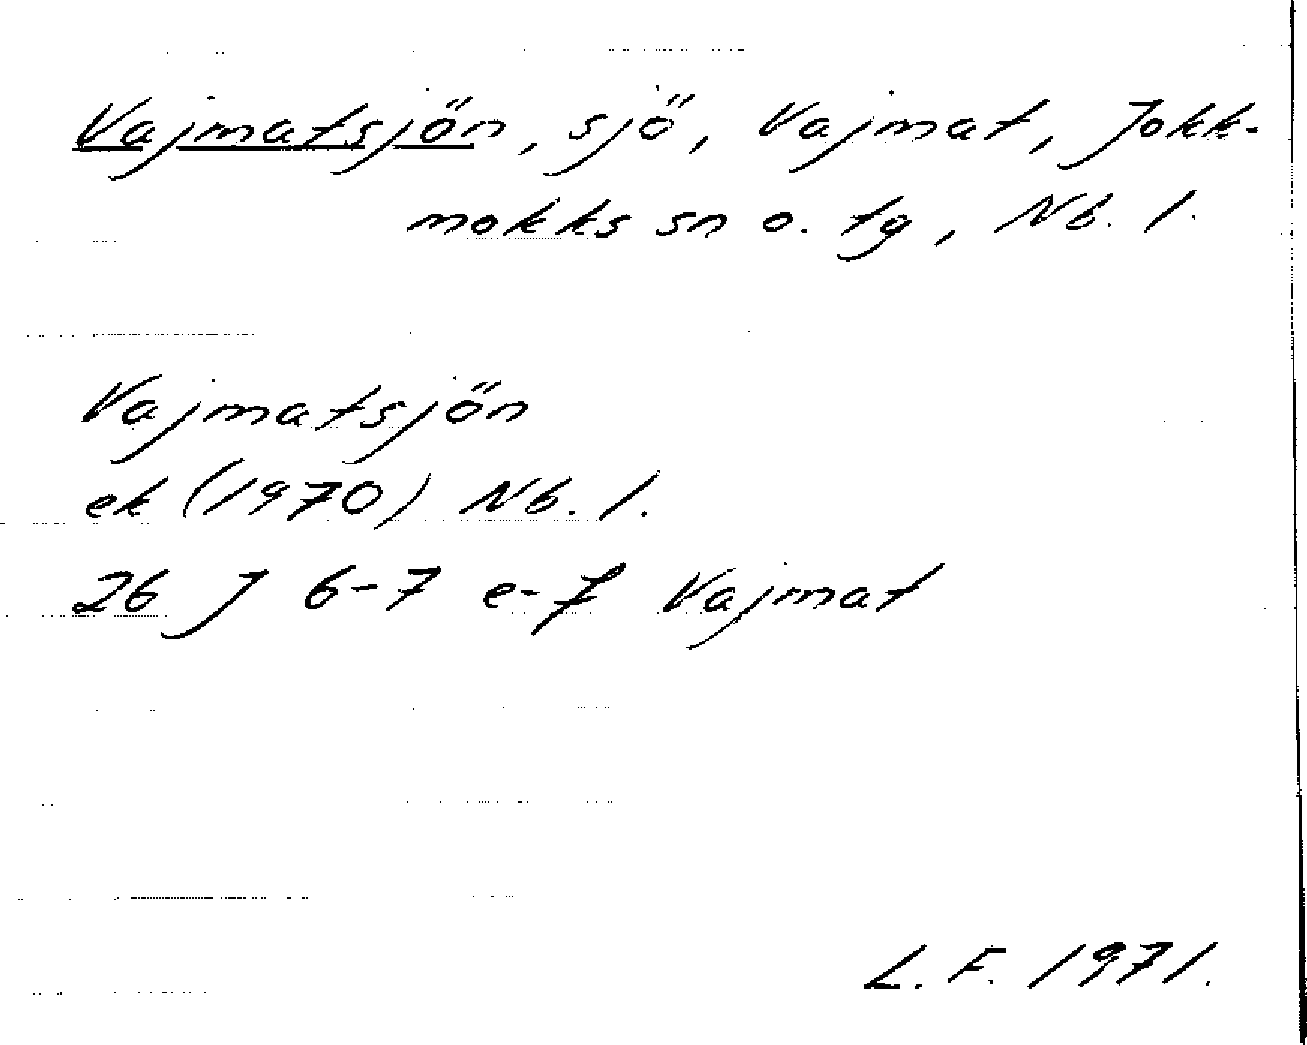 Vajmatsjön, sjö, Vajmat, Jokk-
mokks sn o. tg, Nb. l.
Vajmatsjön
ek (1970) Nb. l.
26 J 6-7 e-f Vajmat
L. F. 1971.